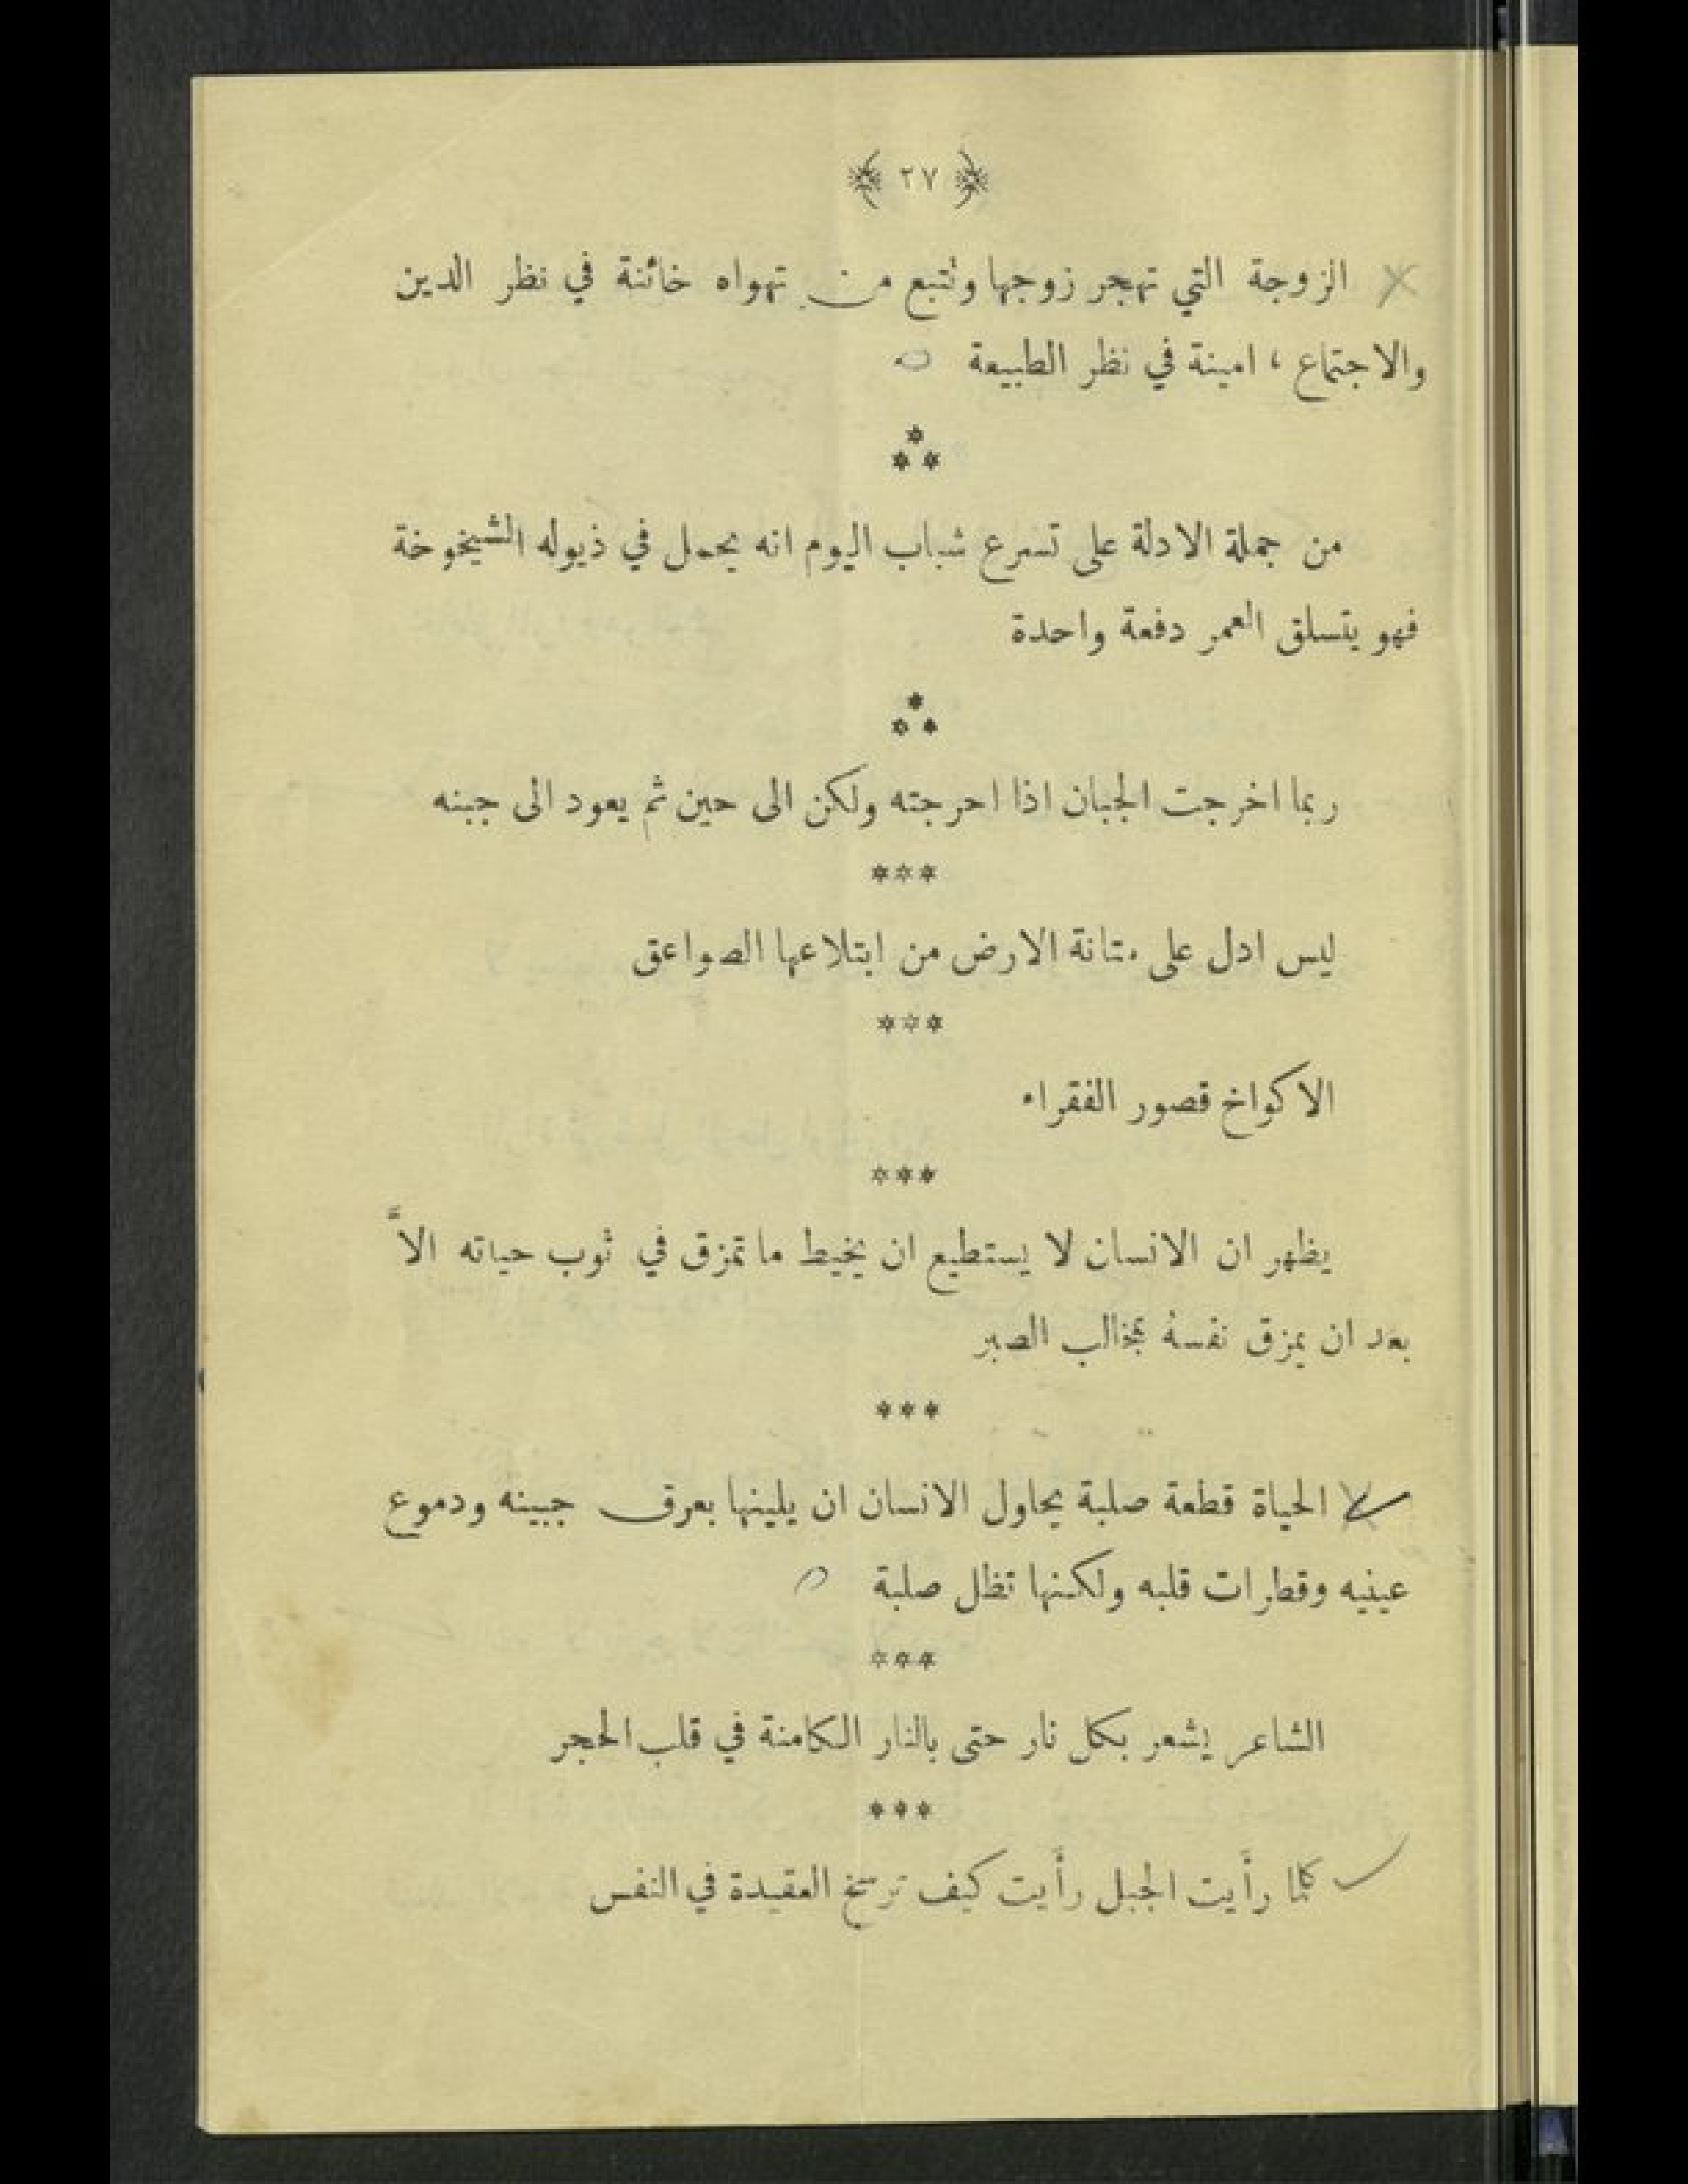 ٢٧
الزوجة التي تهجر زوجها وتتبع من تهواه خائنة في نظر الدين
والاجتماع ، امينة في نظر الطبيعة
***
من جملة الادلة على تسرع شباب اليوم انه يحمل في ذيوله الشيخوخة
فهو يتسلق العمر دفعة واحدة
***
ربما اخرجت الجبان اذا احرجته ولكن الى حين ثم يعود الى جبنه
***
ليس ادل على متانة الارض من ابتلاعها الصواعق
***
الاكواخ قصور الفقراء
***
يظهر ان الانسان لا يستطيع ان يخيط ما تمزق في ثوب حياته الاَّ
بعد ان يمزق نفسهُ بمخالب الصبر
***
الحياة قطعة صلبة يحاول الانسان ان يلينها بعرق جبينه ودموع
عينيه وقطرات قلبه ولكنها تظل صلبة
***
الشاعر يشعر بكل نار حتى بالنار الكامنة في قلب الحجر
***
كلما رأيت الجبل رأيت كيف ترسخ العقيدة في النفس